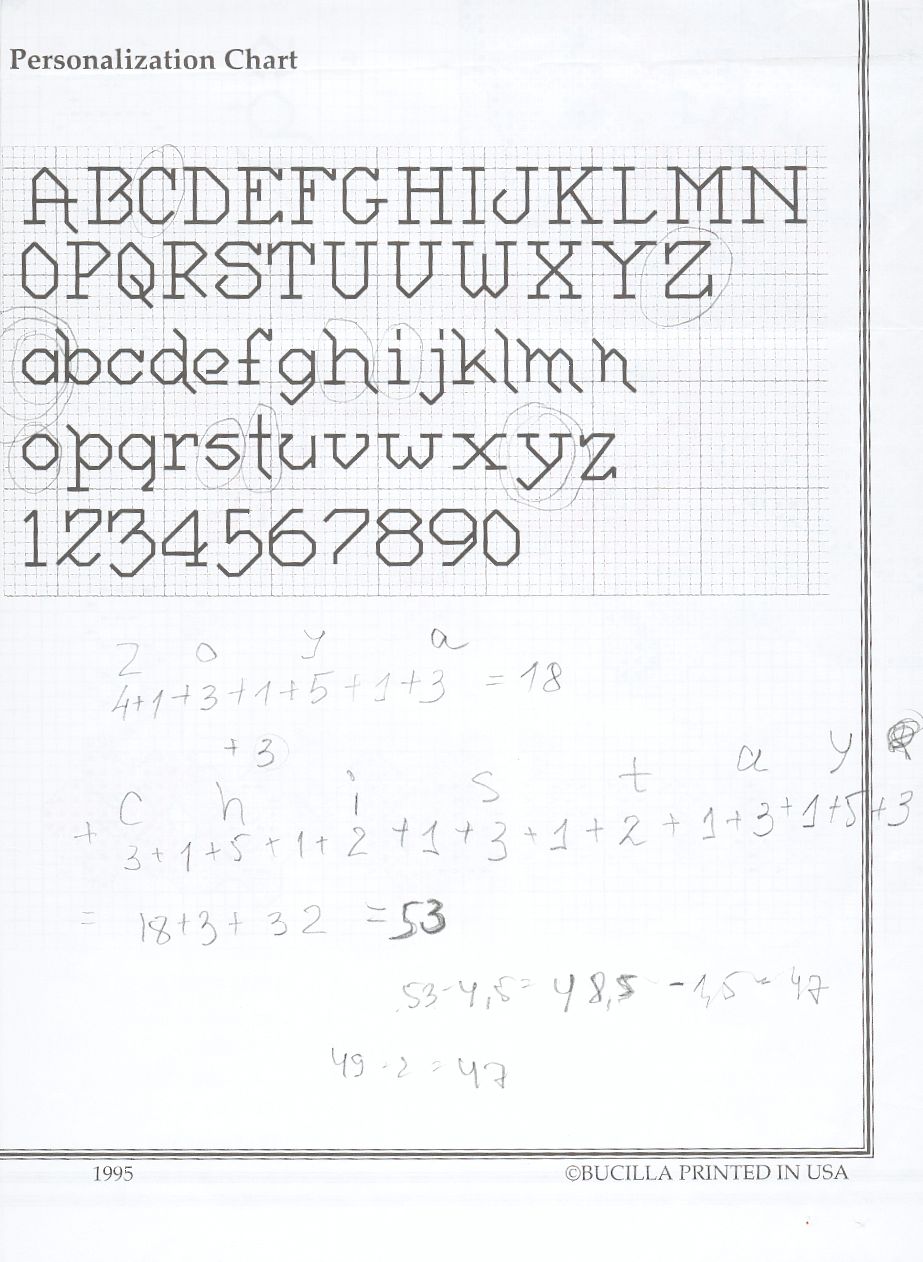 Personalization Chart
ABCDEFGHIJKLMN
OPQRSTUVWXYZ
abcdefghijklmn
opqrstuvwxyz
1234567890
Z o y a
4+1+3+1+5+1+3 = 18
+ 3
C h i s t a y
+ 3+1+5+1+2+1+3+1+2+1+3+1+5+3
= 18+3+32 = 53
53-4,5= 48,5 -1,5= 47
49-2= 47
1995
©BUCILLA PRINTED IN USA